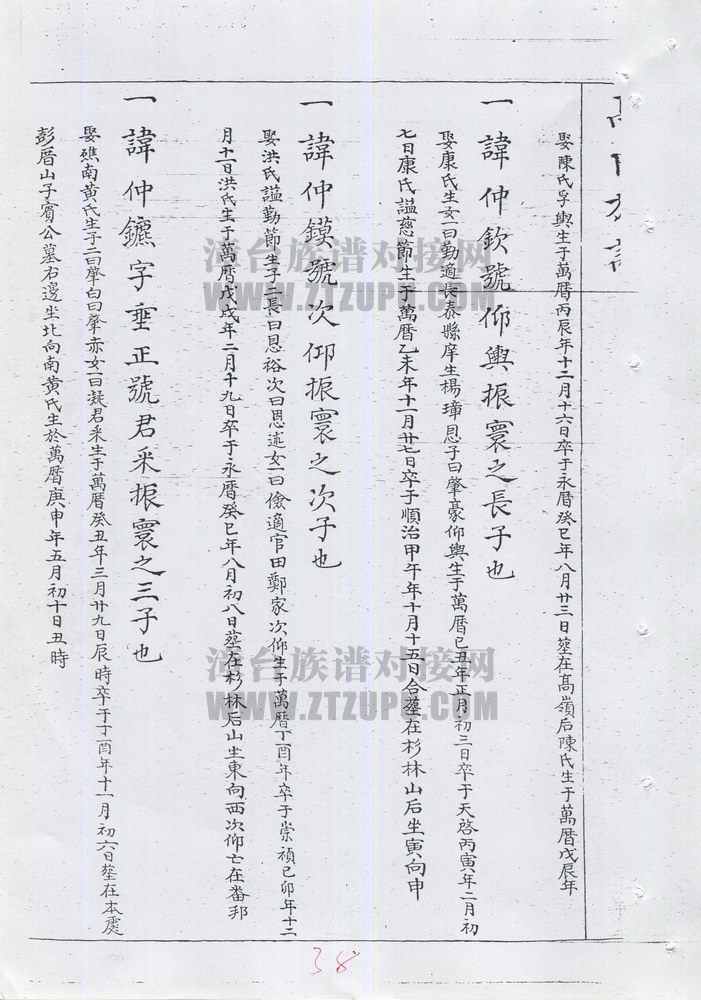 娶陳氏孚興生于萬曆丙辰年十二月十六日卒于永曆癸巳年八月廿三日塟在高嶺后陳氏生于萬曆戊辰年
一諱仲欽號仰輿振寰之長子也
娶康氏生女一曰勤適長泰縣庠生楊璋恩子曰肇豪仰輿生于萬曆己丑年正月初三日卒于天啓丙寅年二月初
七日康氏謚慈節生于萬曆乙未年十一月廿七日卒于順治甲午年十月十五日合塟在杉林山后坐寅向申
一諱仲鏌號次仰振寰之次子也
娶洪氏謚勤節生子二長曰恩裕次曰恩述女一曰儉適官田鄭家次仰生于萬曆丁酉年卒于崇禎己卯年十二
月十一日洪氏生于萬曆戊戌年二月十九日卒于永曆癸巳年八月初八日塟在杉林后山坐東向西次仰亡在畨邦
一諱仲鑣字垂正號君釆振寰之三子也
娶礁南黃氏生子二曰肇白曰肇赤女一曰凝君釆生于萬曆癸丑年三月廿九日辰時卒于丁酉年十一月初六日塟在本處
彭厝山子賓公墓右邊坐北向南黃氏生於萬曆庚申年五月初十日丑時
漳台族谱对接网
WWW.ZTZUPU.COM
漳台族谱对接网
WWW.ZTZUPU.COM
38